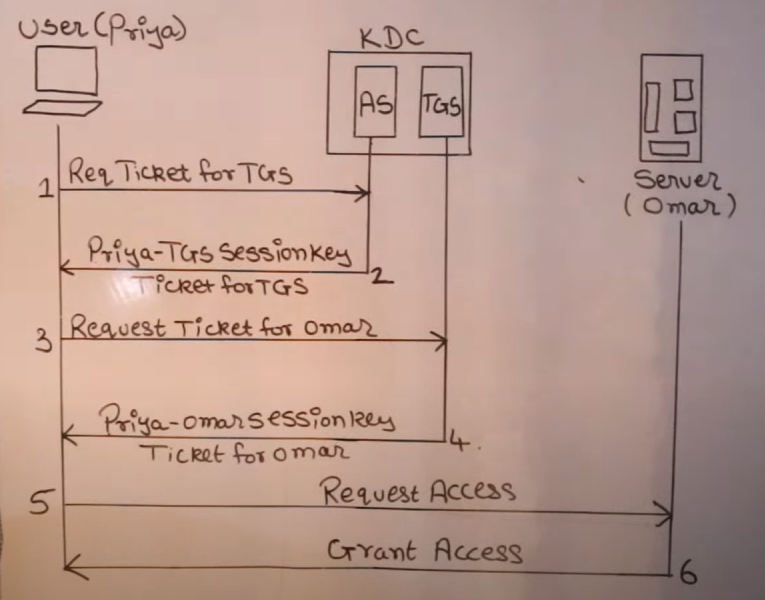 User (Priya)
KDC
AS
TGS
Server
(Omar)
1
Req Ticket for TGS
Priya-TGS Session key
2
Ticket for TGS
3
Request Ticket for Omar
Priya-Omar Session key
4.
Ticket for Omar
5
Request Access
Grant Access
6